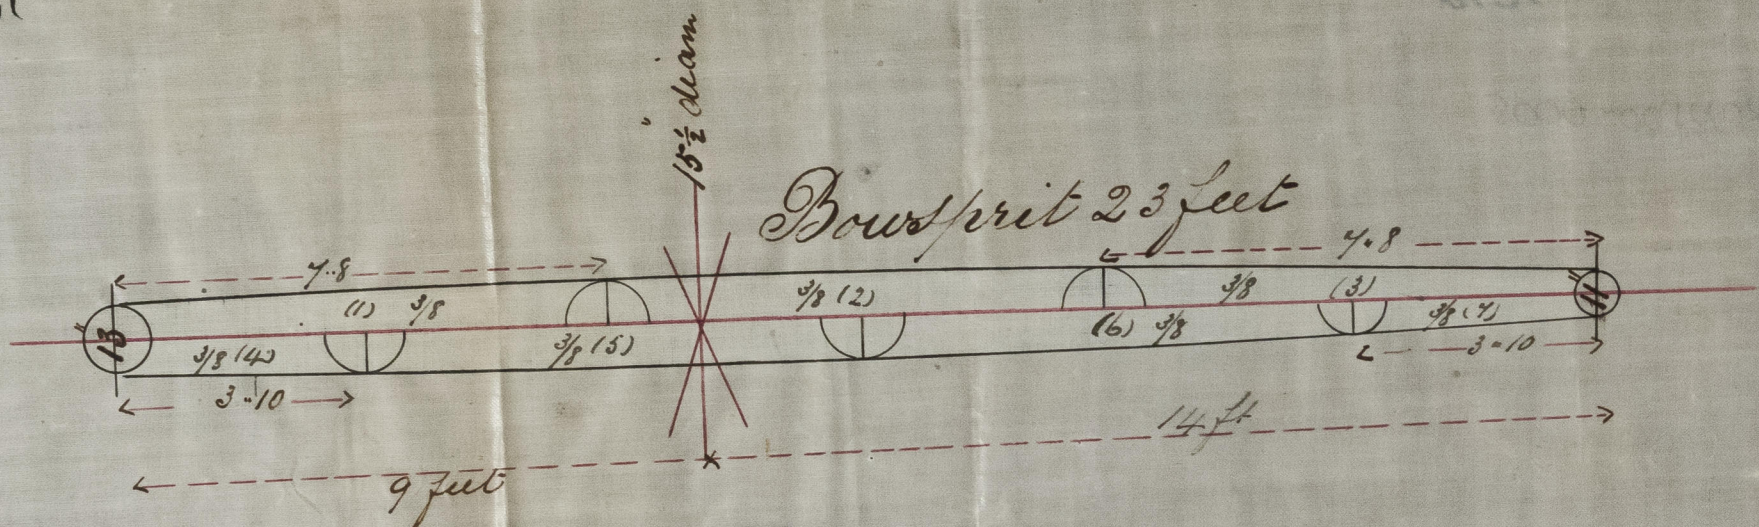 15½" diam
Bowsprit 23 feet
7..8
7.8
(1) 3/8
3/8 (2)
3/8 (3)
13"
11"
3/8 (4)
3/8 (5)
(6) 3/8
3/8 (7)
3"10
3=10
14 ft
9 feet